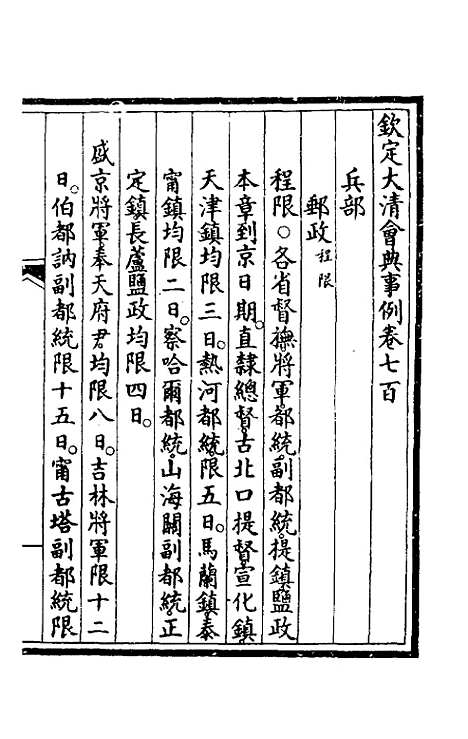 欽定大清會典事例卷七百
兵部
郵政程限
程限○各省督撫將軍都統副都統提鎮鹽政
本章到京日期直隸總督古北口提督宣化鎮
天津鎮均限三日熱河都統限五日馬蘭鎮泰
甯鎮均限二日察哈爾都統山海關副都統正
定鎮長蘆鹽政均限四日
盛京將軍奉天府尹均限八日吉林將軍限十二
日伯都訥副都統限十五日甯古塔副都統限